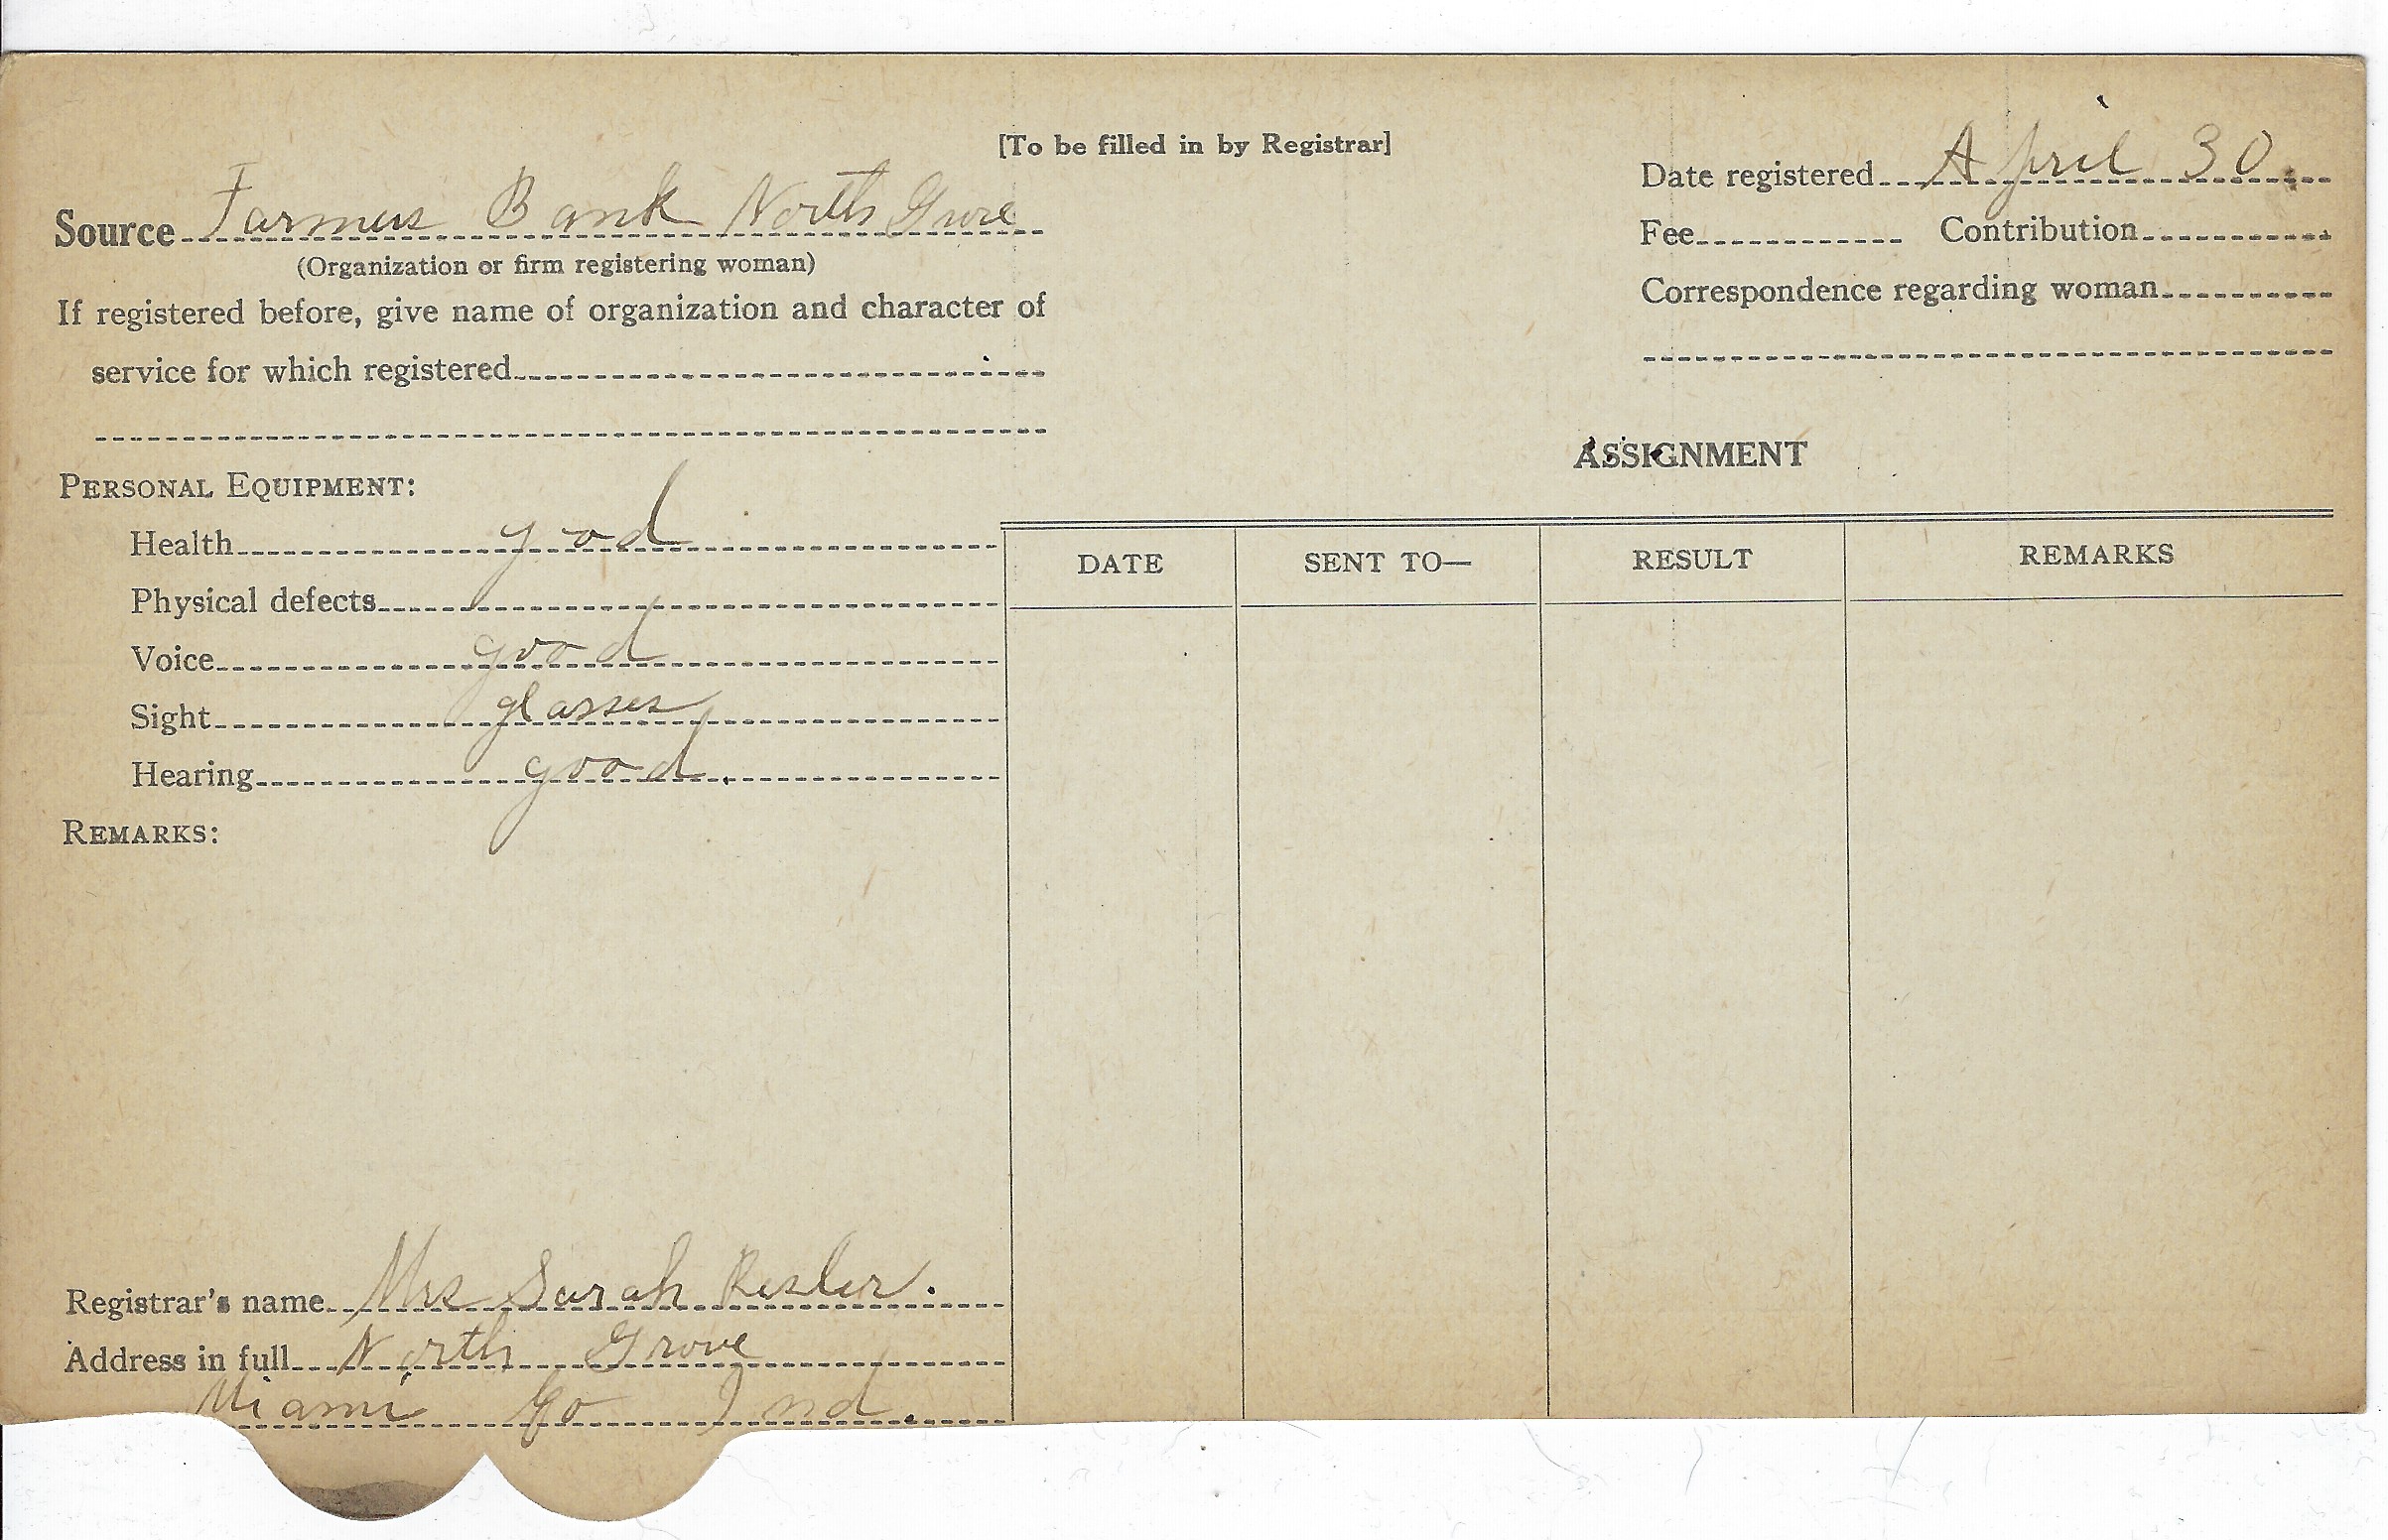 [To be filled in by Registrar]
Source Farmers Bank North Grove
(Organization or firm registering woman)
If registered before, give name of organization and character of
service for which registered
Date registered April 30.
Fee Contribution
Correspondence regarding woman
PERSONAL EQUIPMENT:
Health good
Physical defects
Voice good
Sight glasses
Hearing good.
REMARKS:
ASSIGNMENT
DATE SENT TO— RESULT REMARKS
Registrar's name Mrs Sarah Resler.
Address in full North Grove
Miami Co Ind.